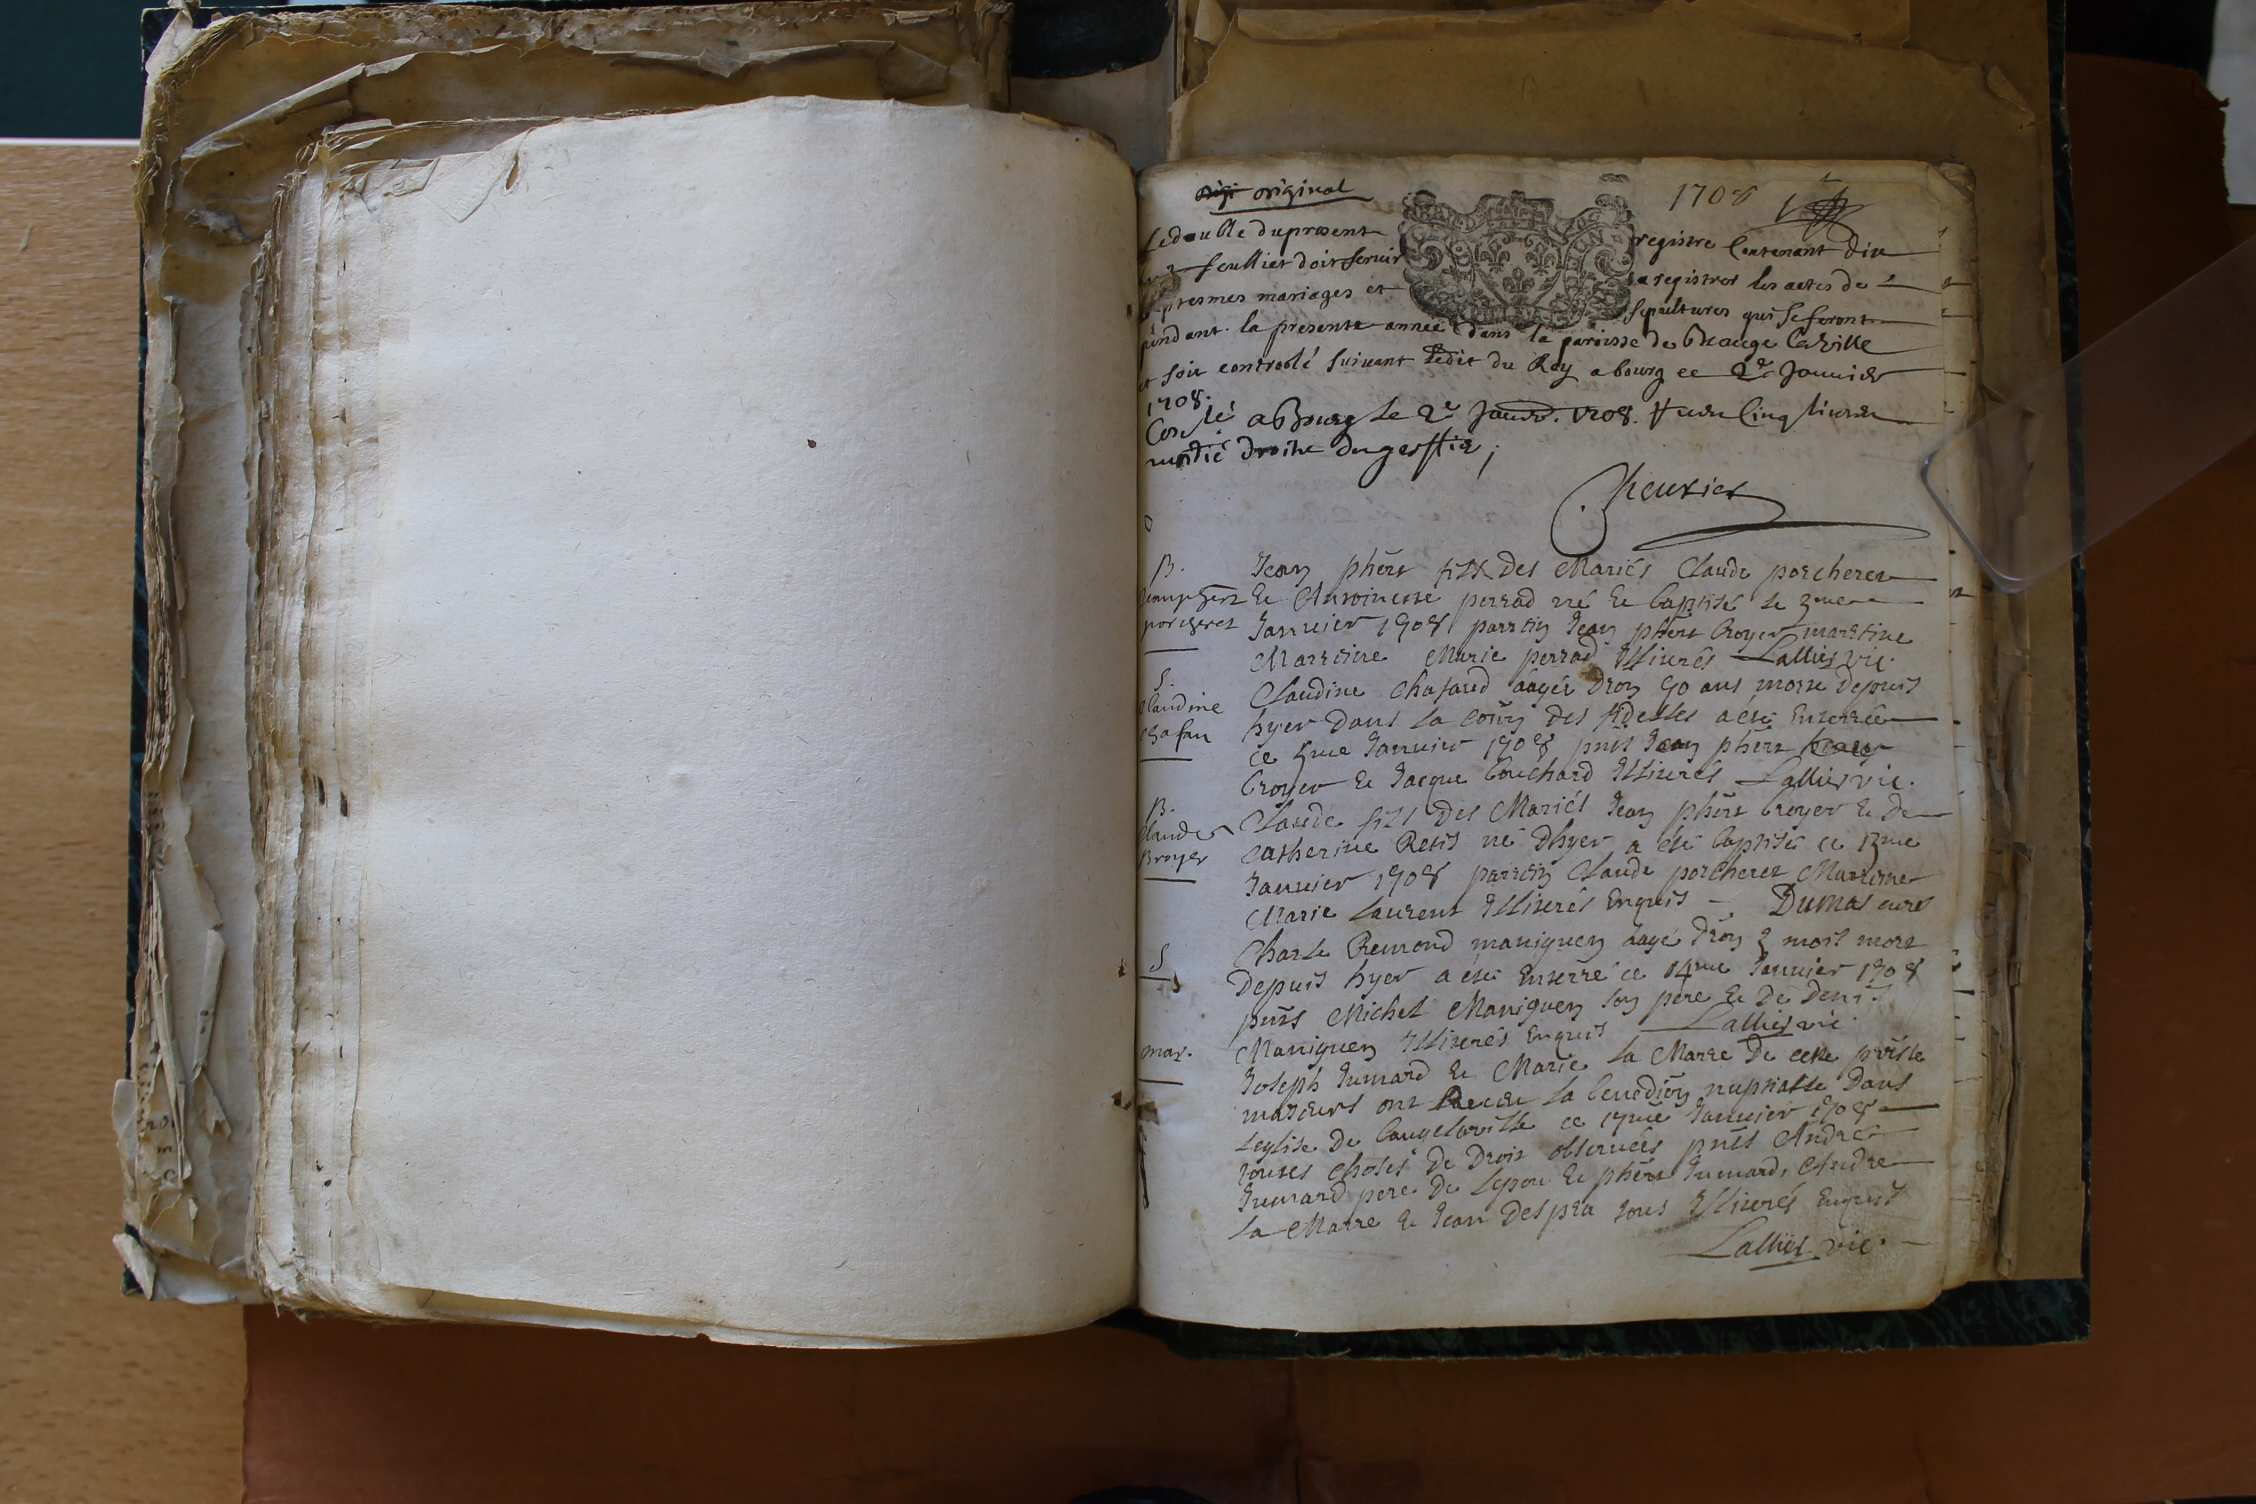 original
1708
Le double du present registre Contenant dix
feulliet doit servir a registrer les actes de
mariages et sepultures qui se feront
pendant la presente année dans la paroisse de Beauge Laville
et soit controolé suivant Ledit du Roy a bourg ce 2e Januier
1708.
a Bourg le 2e Januier 1708. Receu Cinq liures
Cheurier
B.
Jean phert
porcheret
Jean phert fils des Mariés Claude porcheret
et Antoinette perrad né et baptisé le 3me
Januier 1708 parrein Jean phert broyer marreine
Marie perrad Illiterés Lallier vic.
S.
Claudine
chafau
Claudine Chafaud áagée 50 ans morte depuis
hyer dans la des fidelles a esté Enterrée
ce 5me Januier 1708 pnts Jean phert
broyer et Jacque bouchard Illiterés Lallier vic.
B.
Claude
Broyer
Claude fils des Mariés Jean phert broyer et de
Catherine Petit né dhyer a esté baptisé ce 13me
Januier 1708 parrein Claude porcheret Marreine
Marie Laurent Illiterés Enquis - Dumas curé
S
Charle Remond maniguen áagé 3 mois mort
depuis hyer a esté Enterré ce 14me Januier 1708
pnts Michel Maniguen son pere et de denis
Maniguen Illiterés Enquis Lallier vic.
mar.
Joseph Jumard et Marie la Marre de cette
majeurs ont Receu la nuptialle dans
Leglise de baugelaville ce 17me Januier 1708
toutes choses de droit obseruées pnts André
Jumard pere de et phert Jumard, Andre
la Marre et Jean despra tous Illiterés Enquis
Lallier vic.